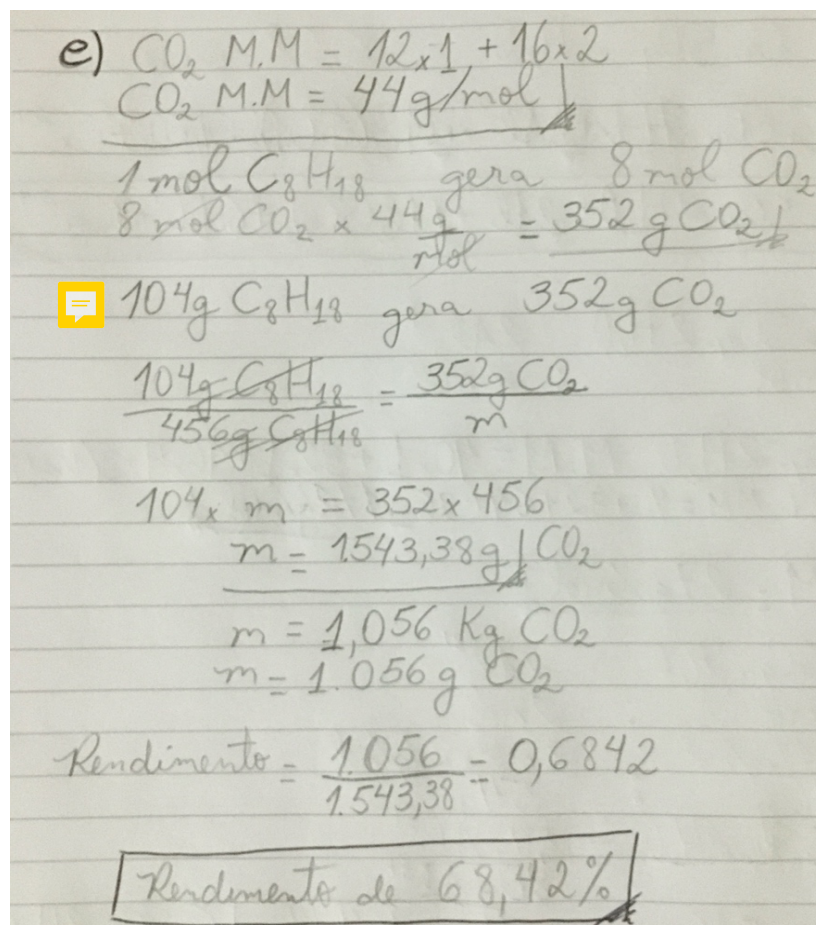 e) CO₂ M.M = 12x1 + 16x2
CO₂ M.M = 44g/mol
1 mol C₈H₁₈ gera 8 mol CO₂
8 mol CO₂ x 44g/mol = 352 g CO₂
104g C₈H₁₈ gera 352g CO₂
104g C₈H₁₈ / 456g C₈H₁₈ = 352g CO₂ / m
104x m = 352x456
m = 1543,38g CO₂
m = 1,056 Kg CO₂
m = 1.056g CO₂
Rendimento = 1.056 / 1.543,38 = 0,6842
Rendimento de 68,42%